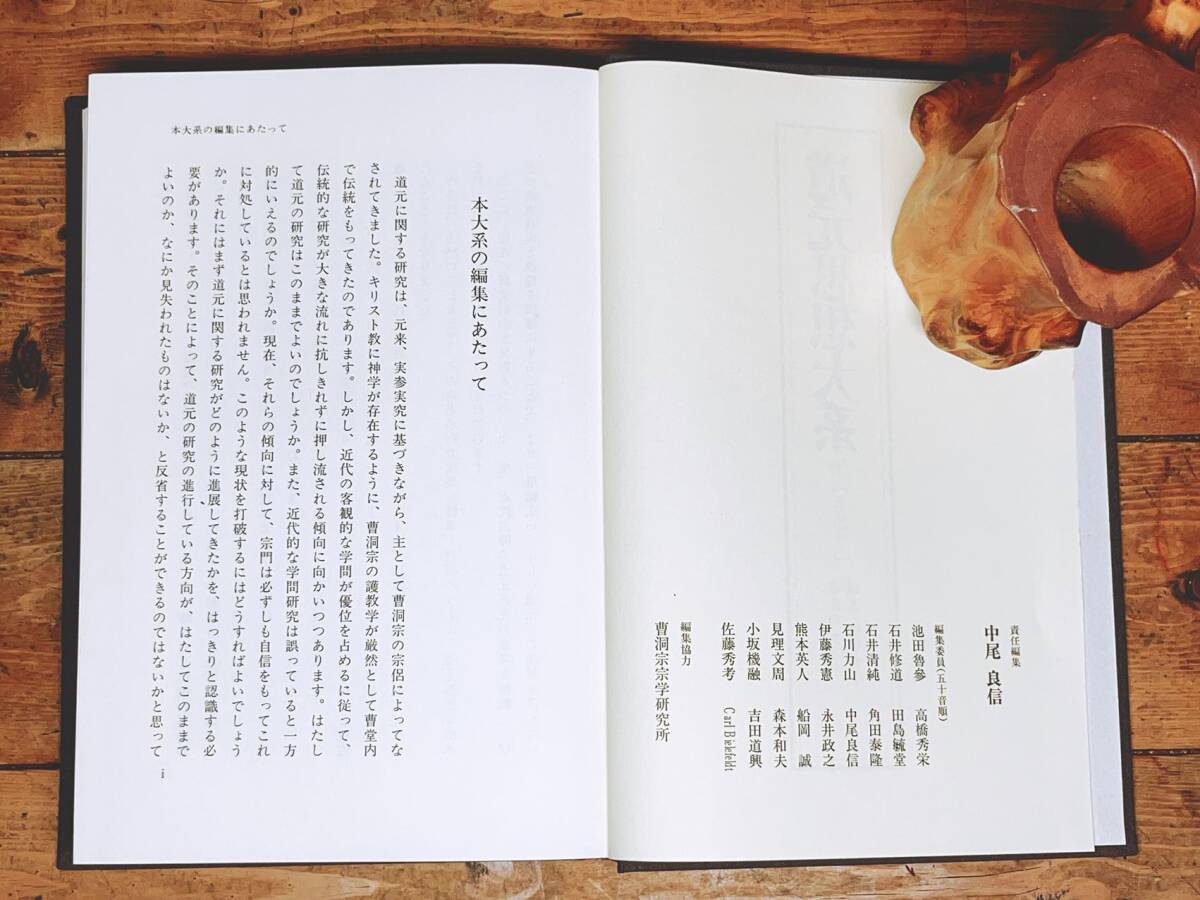 責任編集
中尾 良信
編集委員(五十音順)
池田魯參 高橋秀栄
石井修道 田島毓堂
石井清純 角田泰隆
石川力山 中尾良信
伊藤秀憲 永井政之
熊本英人 船岡 誠
見理文周 森本和夫
小坂機融 吉田道興
佐藤秀考 Carl Bielefeldt
編集協力
曹洞宗宗学研究所
本大系の編集にあたって
本大系の編集にあたって
道元に関する研究は、元来、実参実究に基づきながら、主として曹洞宗の宗侶によってな
されてきました。キリスト教に神学が存在するように、曹洞宗の護教学が厳然として曹堂内
で伝統をもってきたのであります。しかし、近代の客観的な学問が優位を占めるに従って、
伝統的な研究が大きな流れに抗しきれずに押し流される傾向に向かいつつあります。はたし
て道元の研究はこのままでよいのでしょうか。また、近代的な学問研究は誤っていると一方
的にいえるのでしょうか。現在、それらの傾向に対して、宗門は必ずしも自信をもってこれ
に対処しているとは思われません。このような現状を打破するにはどうすればよいでしょう
か。それにはまず道元に関する研究がどのように進展してきたかを、はっきりと認識する必
要があります。そのことによって、道元の研究の進行している方向が、はたしてこのままで
よいのか、なにか見失われたものはないか、と反省することができるのではないかと思って
i